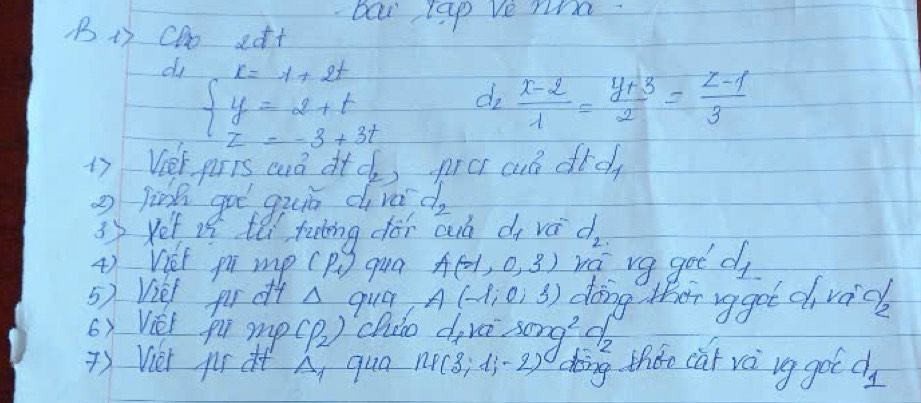 Bài Tập Về nhà.
B 1> Cho 2đt
d1 { x = 1 + 2t
y = 2 + t
z = -3 + 3t
d2 x-2/1 = y+3/2 = z-1/3
1> Viết ptTS của đt d2, ptCT của đt d1
2> Tính góc giữa d1 và d2
3> Xét vị trí tương đối của d1 và d2.
4> Viết pt mp (P1) qua A(-1, 0, 3) và vg góc d1
5> Viết pt đt Δ qua A (-1; 0; 3) đồng thời vg góc d1 và d2
6> Viết pt mp (P2) chứa d1 và song² d2
7> Viết pt đt Δ1 qua M(3; 1; -2) đồng thời cắt và vg góc d1